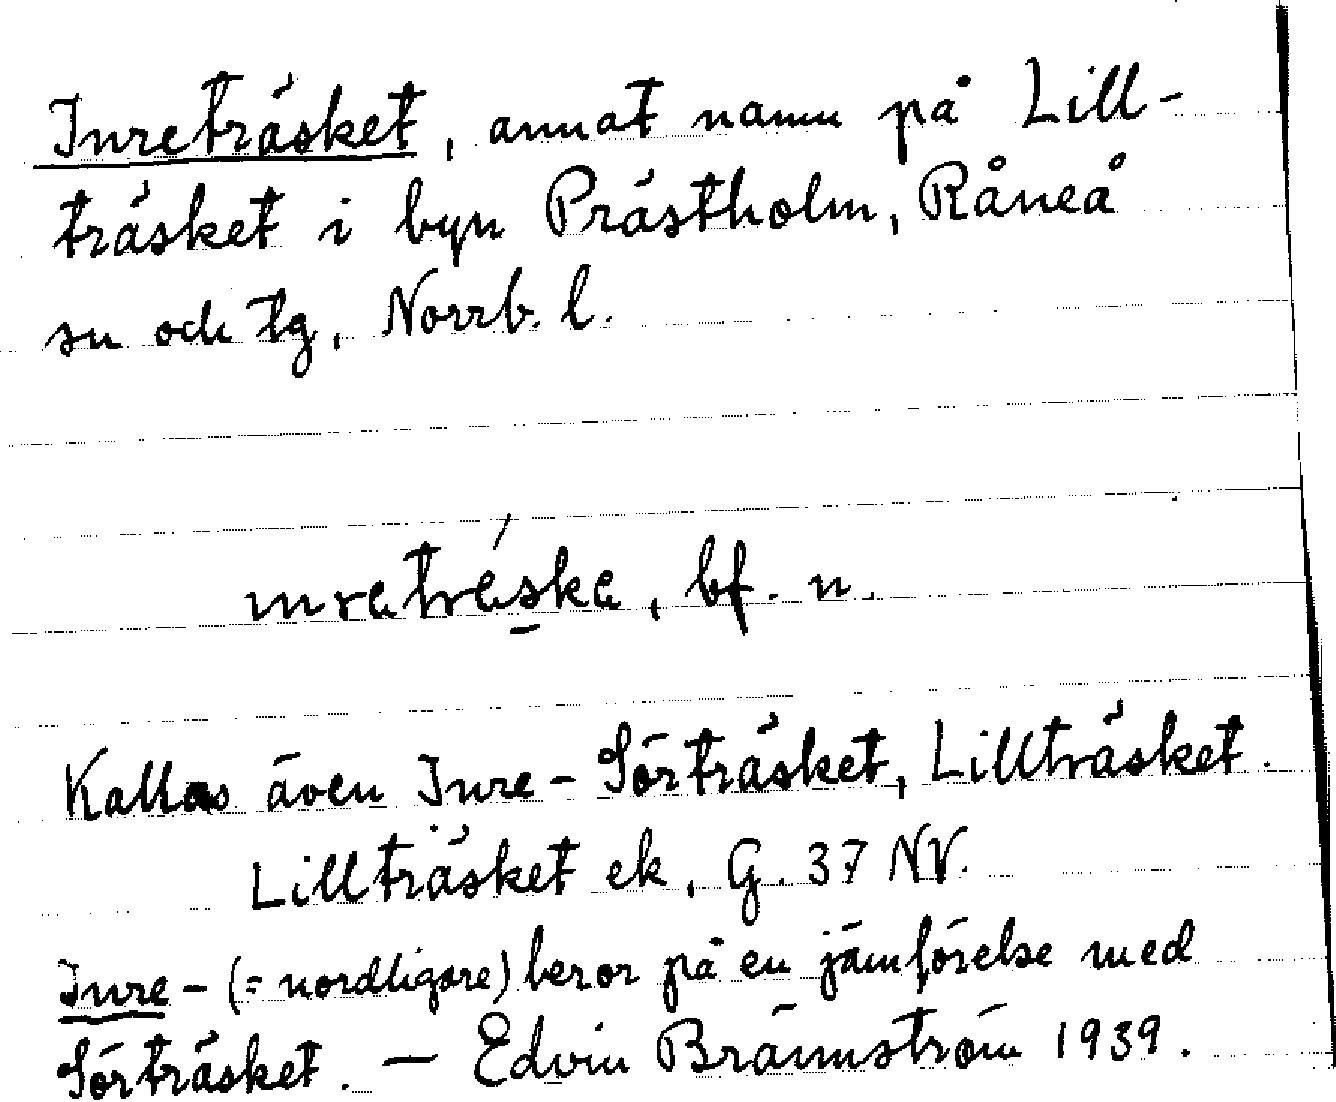 Inreträsket, annat namn på Lill-
träsket i byn Prästholm, Råneå
sn och tg, Norrb. l.
ınretréska, bf. n.
Kallas även Inre-Sörträsket, Lillträsket.
Lillträsket ek, G. 37 NV.
Inre- (= nordligare) beror på en jämförelse med
Sörträsket. — Edvin Brännström 1939.